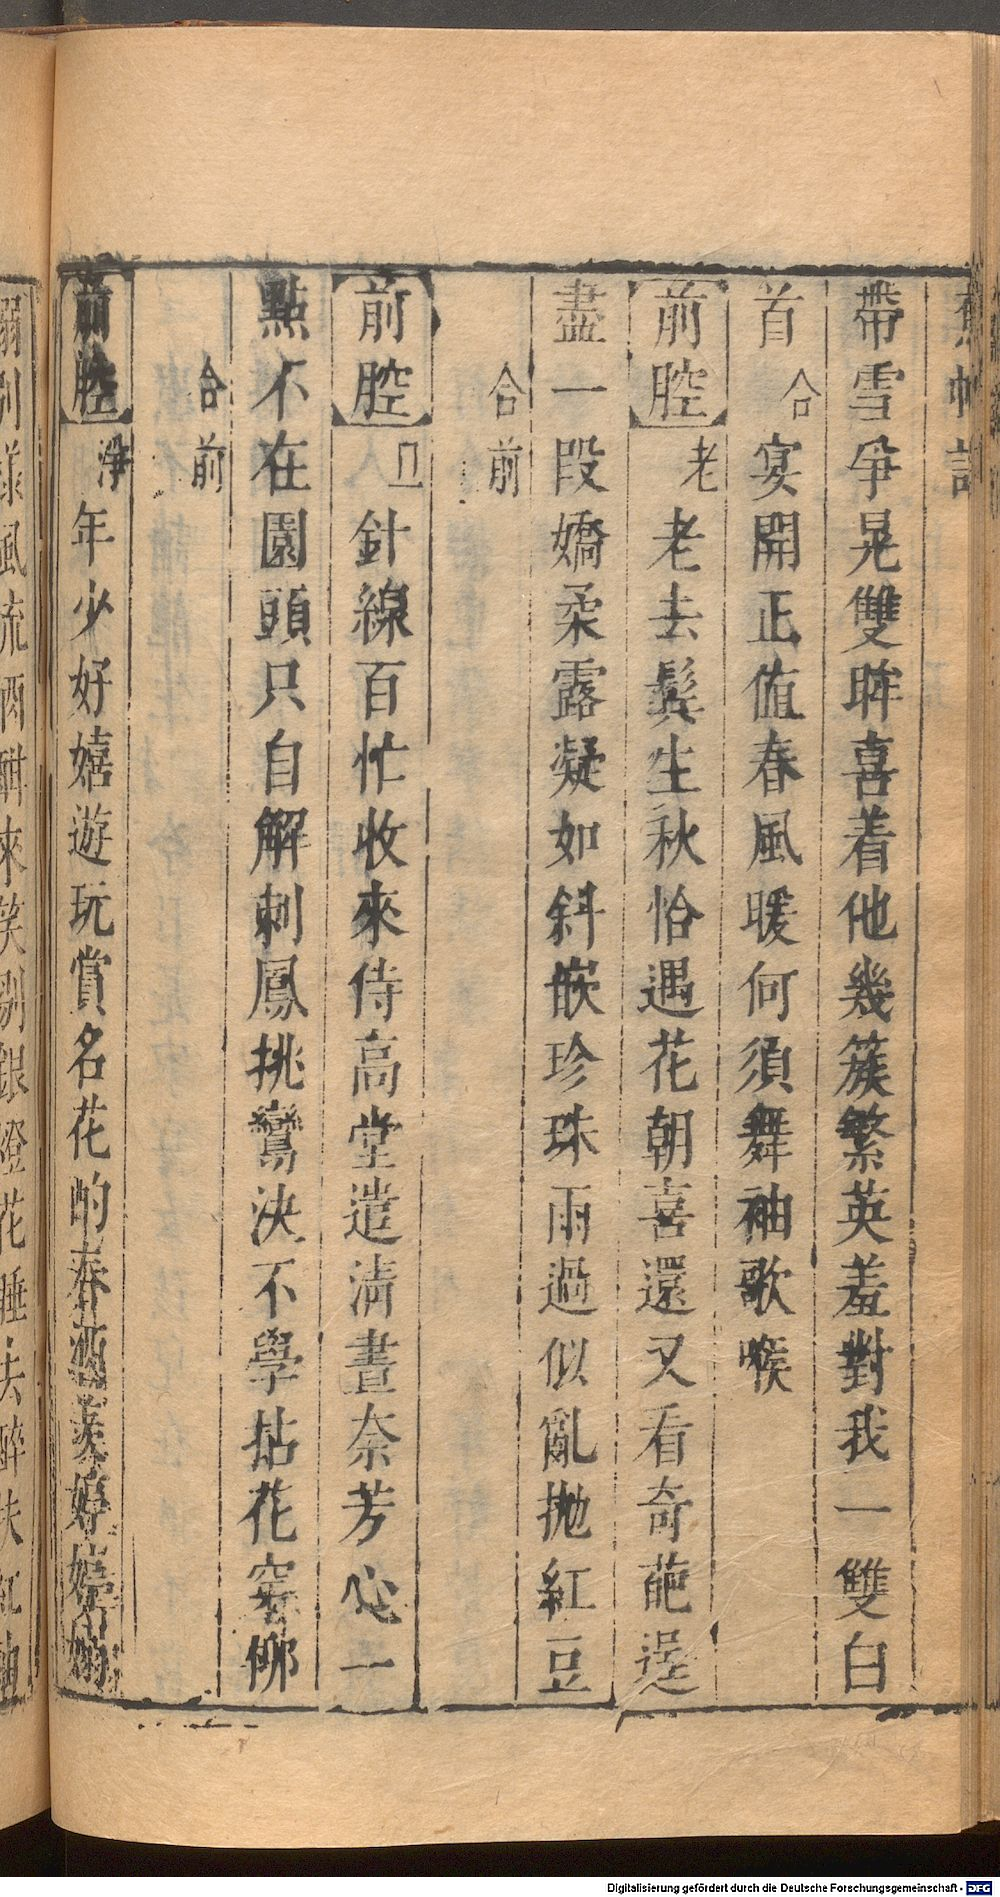 蕉帕記
帶雪爭晃雙眸喜着他幾簇繁英羞對我一雙白
首合宴開正值春風暖何須舞袖歌喉
前腔老老去鬂生秋恰遇花朝喜還又看奇葩逞
盡一段嬌柔露凝如斜嵌珍珠雨過似亂拋紅豆
合前
前腔針線百忙收來侍高堂遣清晝奈芳心一
點不在園頭只自解刺鳳挑鸞決不學拈花窣柳
合前
前腔淨年少好嬉遊玩賞名花酌春酒羨婷婷
別樣風流酒酣來笑剔銀燈花睡去醉扶紅袖
Digitalisierung gefördert durch die Deutsche Forschungsgemeinschaft - DFG